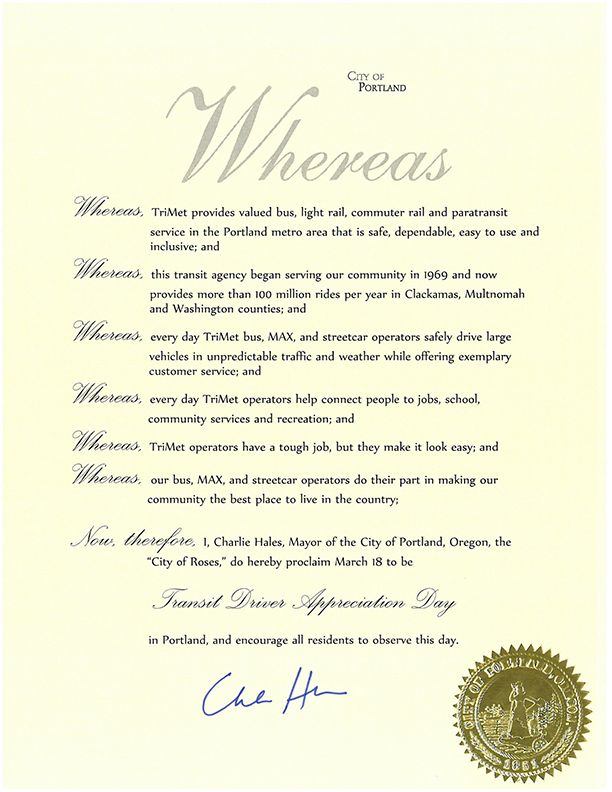 City of
Portland
Whereas
Whereas, TriMet provides valued bus, light rail, commuter rail and paratransit
service in the Portland metro area that is safe, dependable, easy to use and
inclusive; and
Whereas, this transit agency began serving our community in 1969 and now
provides more than 100 million rides per year in Clackamas, Multnomah
and Washington counties; and
Whereas, every day TriMet bus, MAX, and streetcar operators safely drive large
vehicles in unpredictable traffic and weather while offering exemplary
customer service; and
Whereas, every day TriMet operators help connect people to jobs, school,
community services and recreation; and
Whereas, TriMet operators have a tough job, but they make it look easy; and
Whereas, our bus, MAX, and streetcar operators do their part in making our
community the best place to live in the country;
Now, therefore, I, Charlie Hales, Mayor of the City of Portland, Oregon, the
“City of Roses,” do hereby proclaim March 18 to be
Transit Driver Appreciation Day
in Portland, and encourage all residents to observe this day.
CITY OF PORTLAND, OGN.
1851